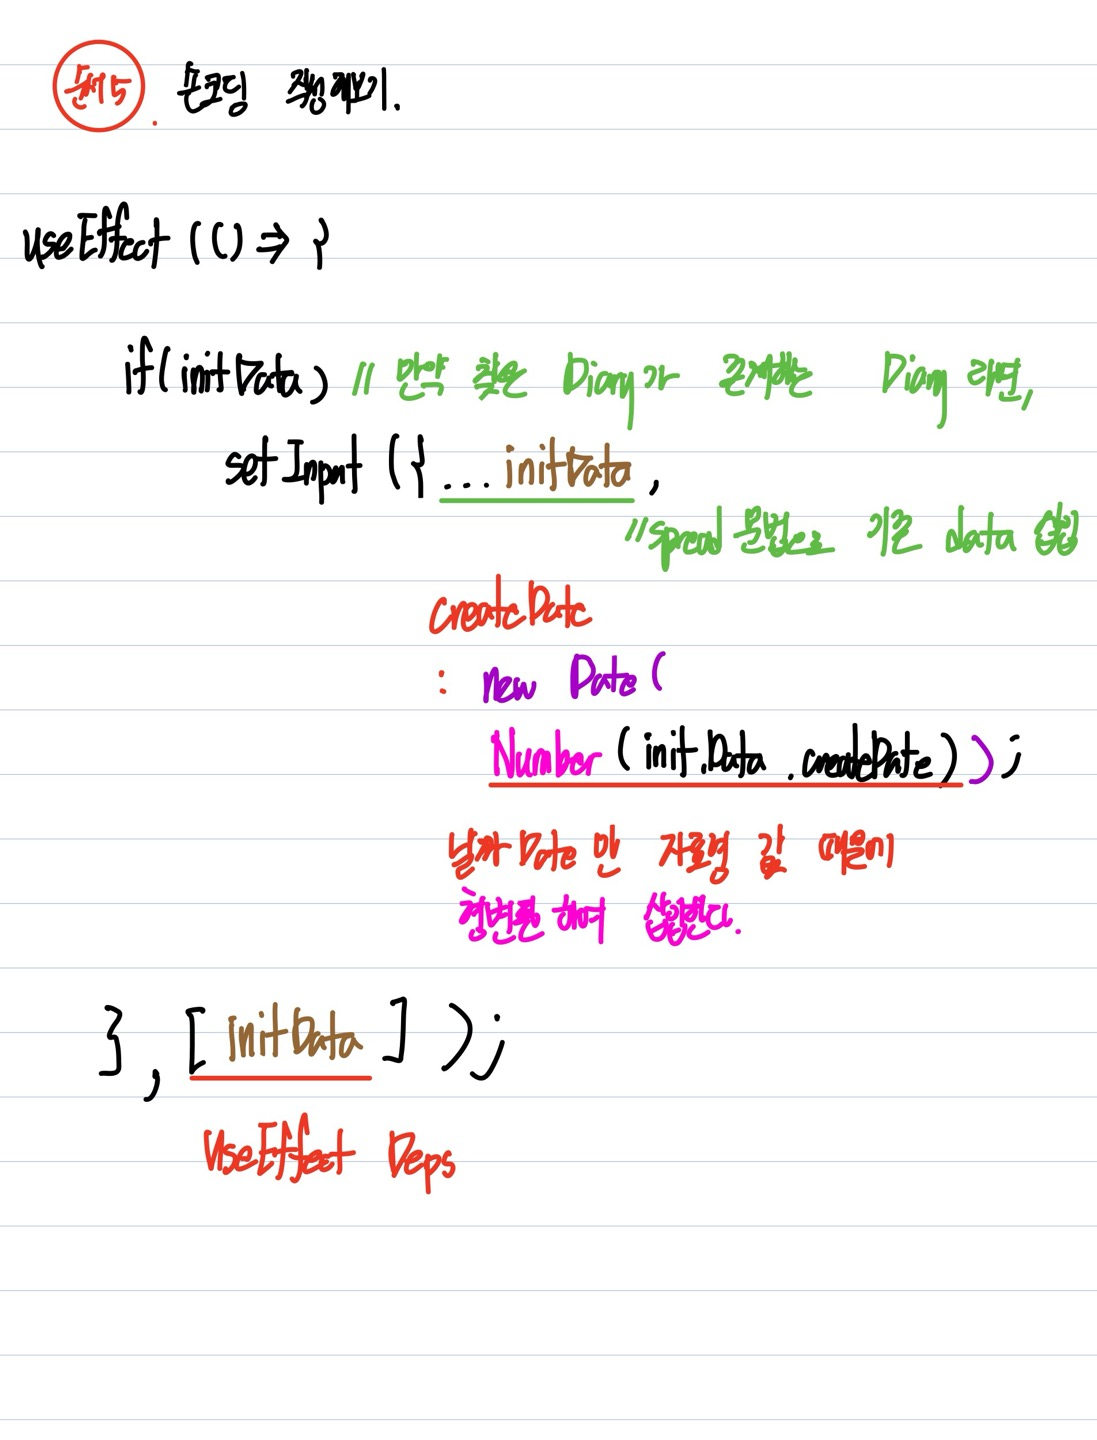 문제5. 손코딩 작성해보기.
useEffect (() => }
if(initData) // 만약 찾은 Diary가 존재하는 Diary 라면,
setInput ({ ... initData ,
//spread 문법으로 기존 data 삽입
createDate
: new Date (
Number (init.Data .createDate) ) ;
날짜 Date 만 자료형 값 때문에
형변환 하여 삽입한다.
} , [ initData ] ) ;
UseEffect Deps